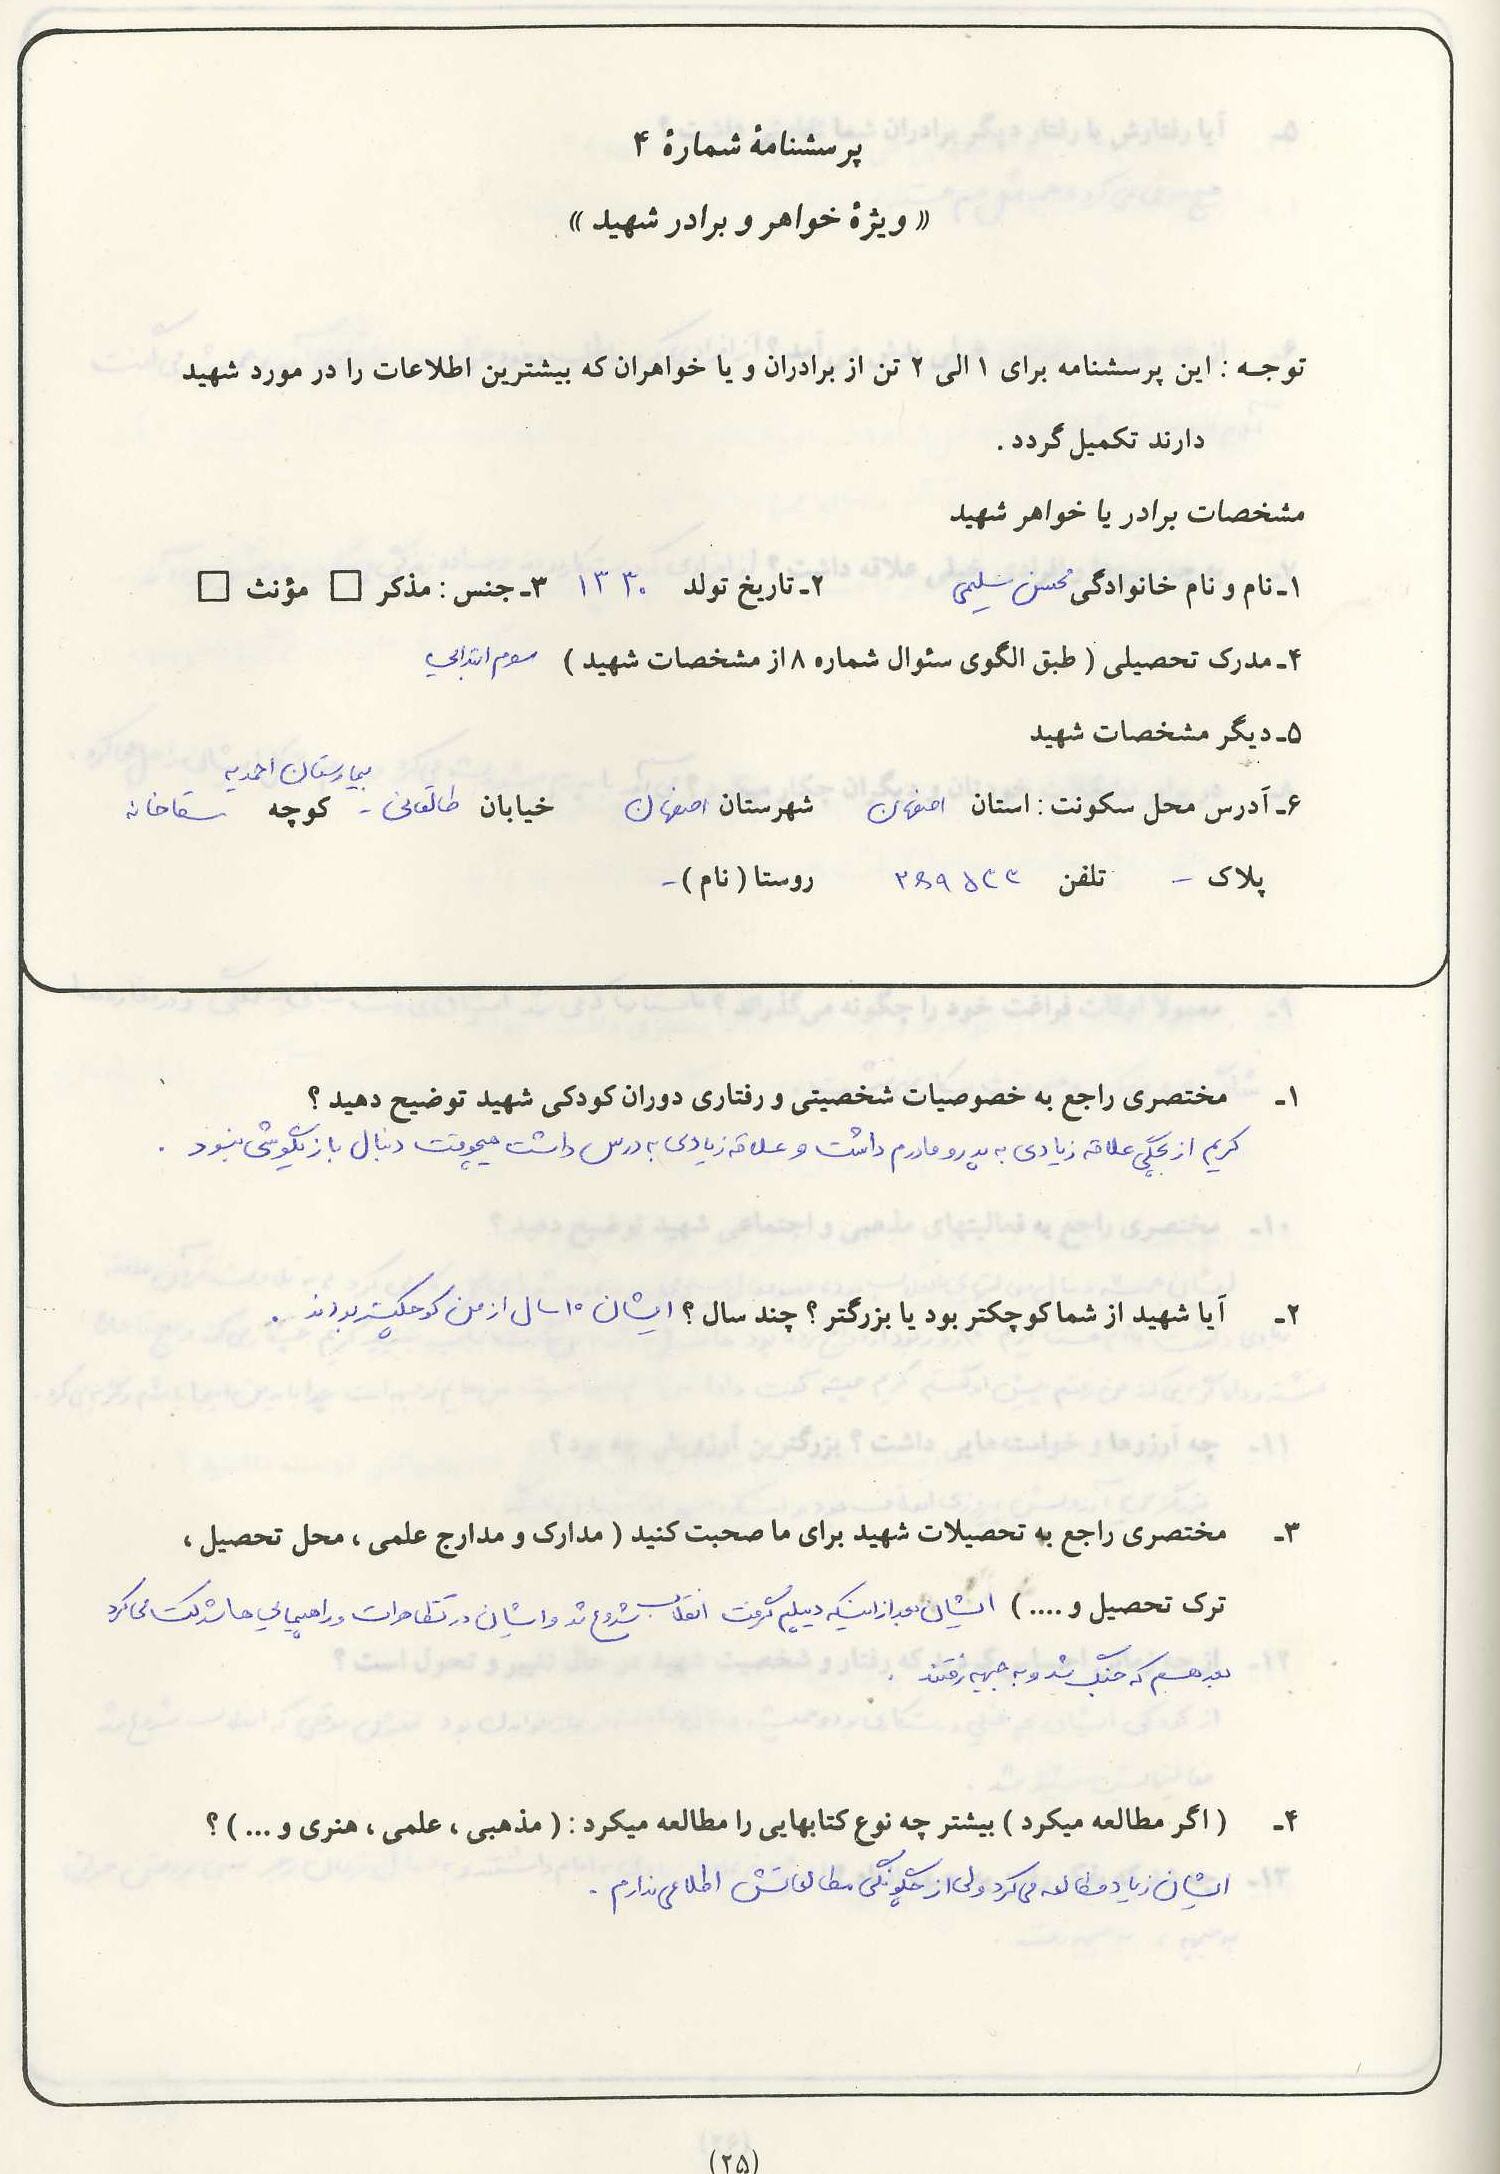 پرسشنامهٔ شمارهٔ ۴
« ویژهٔ خواهر و برادر شهید »
توجـه : این پرسشنامه برای ۱ الی ۲ تن از برادران و یا خواهران که بیشترین اطلاعات را در مورد شهید
دارند تکمیل گردد .
مشخصات برادر یا خواهر شهید
۱ـ نام و نام خانوادگی محسن سلیمی ۲ـ تاریخ تولد ۱۳۳۰ ۳ـ جنس : مذکر □ مؤنث □
۴ـ مدرک تحصیلی ( طبق الگوی سئوال شماره ۸ از مشخصات شهید ) سوم ابتدایی
۵ـ دیگر مشخصات شهید
بیمارستان احمدیه
۶ـ آدرس محل سکونت : استان اصفهان شهرستان اصفهان خیابان طالقانی - کوچه سقاخانه
پلاک - تلفن روستا ( نام ) -
۱ـ مختصری راجع به خصوصیات شخصیتی و رفتاری دوران کودکی شهید توضیح دهید ؟
کریم از بچگی علاقه زیادی به پدر و مادرم داشت و علاقه زیادی به درس داشت هیچوقت دنبال بازیگوشی نبود .
۲ـ آیا شهید از شما کوچکتر بود یا بزرگتر ؟ چند سال ؟ ایشان ۱۰ سال از من کوچکتر بودند .
۳ـ مختصری راجع به تحصیلات شهید برای ما صحبت کنید ( مدارک و مدارج علمی ، محل تحصیل ،
ترک تحصیل و .... ) ایشان بعد از اینکه دیپلم گرفت انقلاب شروع شد و ایشان در تظاهرات و راهپیمایی ها شرکت می کرد
بعد هم که جنگ شد و به جبهه رفتند .
۴ـ ( اگر مطالعه میکرد ) بیشتر چه نوع کتابهایی را مطالعه میکرد : ( مذهبی ، علمی ، هنری و ... ) ؟
ایشان زیاد مطالعه می کرد ولی از چگونگی مطالعاتش اطلاعی ندارم .
(۲۵)